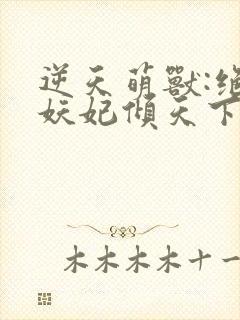 逆天萌獸:絕
妖妃傾天下
木木木木十一